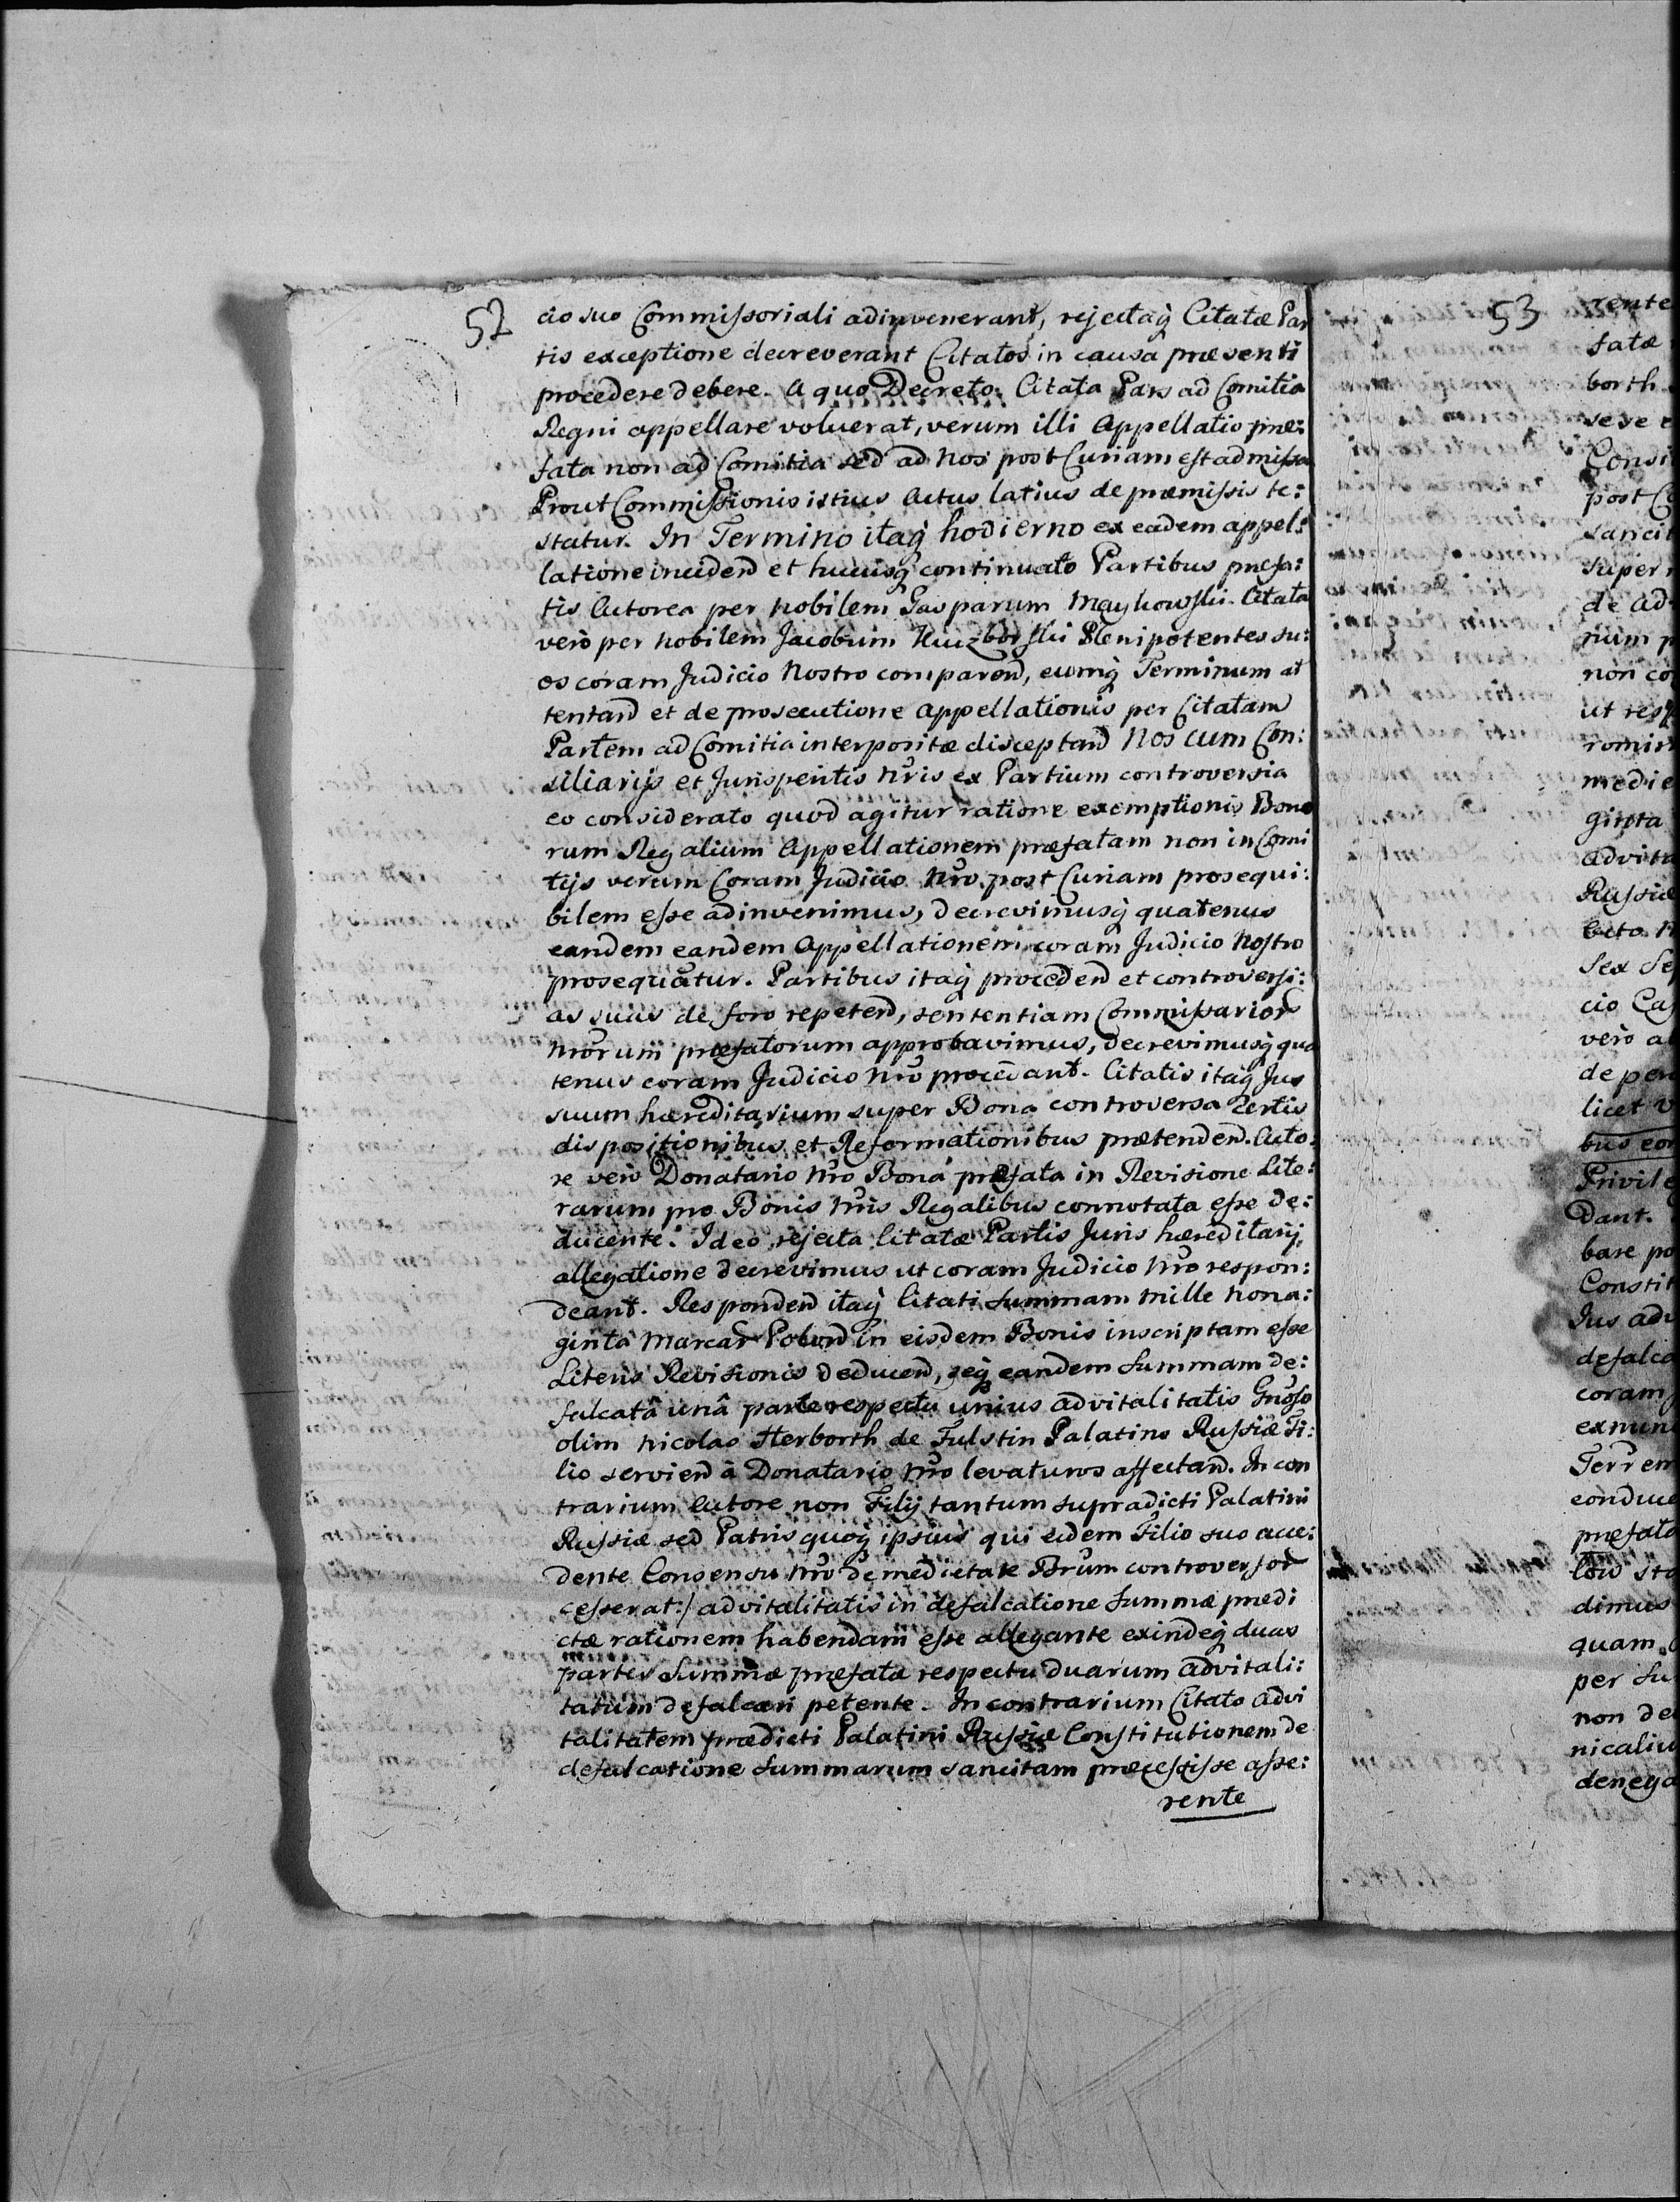 52
cio suo Commissoriali adinvenerant, rejectaq̃ Citatæ Par
tis exceptione decreverant Citatos in causa præsenti
procedere debere. A quo Decreto Citata Pars ad Comitia
Regni appellare voluerat, verum illi Appellatio præ:
fata non ad Comitia sed ad Nos post Curiam est admissa
Prout Commissionis istius Actus latius de præmissis te:
statur. In Termino itaq̃ hodierno ex eadem appel:
latione inciden̄ et hucusq̃ continuato Partibus præfa:
tis Actorea per Nobilem Gasparum Maykowski Citata
verò per Nobilem Jacobum Plenipotentes su:
os coram Judicio Nostro comparen̄, eumq̃ Terminum at
tentan̄ et de prosecutione appellationis per Citatam
Partem ad Comitia interpositæ disceptan̄ Nos cum Con:
siliarijs et Jurisperitis Nr̃is ex Partium controversia
eo considerato quod agitur ratione exemptionis Bono
rum Regalium Appellationem præfatam non in Comi
tijs verum Coram Judicio Nr̃o post Curiam prosequi:
bilem esse adinvenimus, decrevimusq̃ quatenus
eandem eandem Appellationem coram Judicio Nostro
prosequatur. Partibus itaq̃ proceden̄ et controversi:
as suas de foro repeten̄, sententiam Commissarior̃
Nr̃orum præfatorum approbavimus, decrevimusq̃ qua
tenus coram Judicio Nr̃o procedant. Citatis itaq̃ Jus
suum hæreditarium super Bona controversa certis
dispositionibus et Reformationibus prætenden̄. Acto:
re verò Donatario Nr̃o Bona præfata in Revisione Lite:
rarum pro Bonis Nr̃is Regalibus connotata esse de:
ducente. Ideo rejecta Citatæ Partis Juris hæreditarij
allegatione decrevimus ut coram Judicio Nr̃o respon:
deant. Responden̄ itaq̃ Citati Summam Mille Nona:
ginta Marcar̃ Polon̄ in eisdem Bonis inscriptam esse
Literis Revisionis deducen̄, seq̃ eandem Summam de:
falcatâ unâ parte respectu unius advitalitatis Gn̄oso
olim Nicolao Herborth de Fulstin Palatino Russiæ Fi:
lio servien̄ à Donatario Nr̃o levaturos affectan̄. In con
trarium Actore non Filij tantum supradicti Palatini
Russiæ sed Patris quoq̃ ipsius qui eidem Filio suo acce:
dente Consensu Nr̃o de medietate Br̃um controversor̃
cesserat:/ advitalitatis in defalcatione Summæ prædi
ctæ rationem habendam esse allegante exindeq̃ duas
partes Summæ præfatæ respectu duarum advitali:
tatum defalcari petente. In contrarium Citato advi
talitatem prædicti Palatini Russiæ Constitutionem de
defalcatione Summarum sancitam præcessisse asse:
rente
53
rente
fatæ
borth
sese
post
super
de ad
non co
medie
ginta
advita
Russiæ
cio
verò
licet
Dant.
bare
Constit
Jus adv
defalca
coram
exnunc
præfato
dimus
quam
per Su
non de
nicaliu
denega